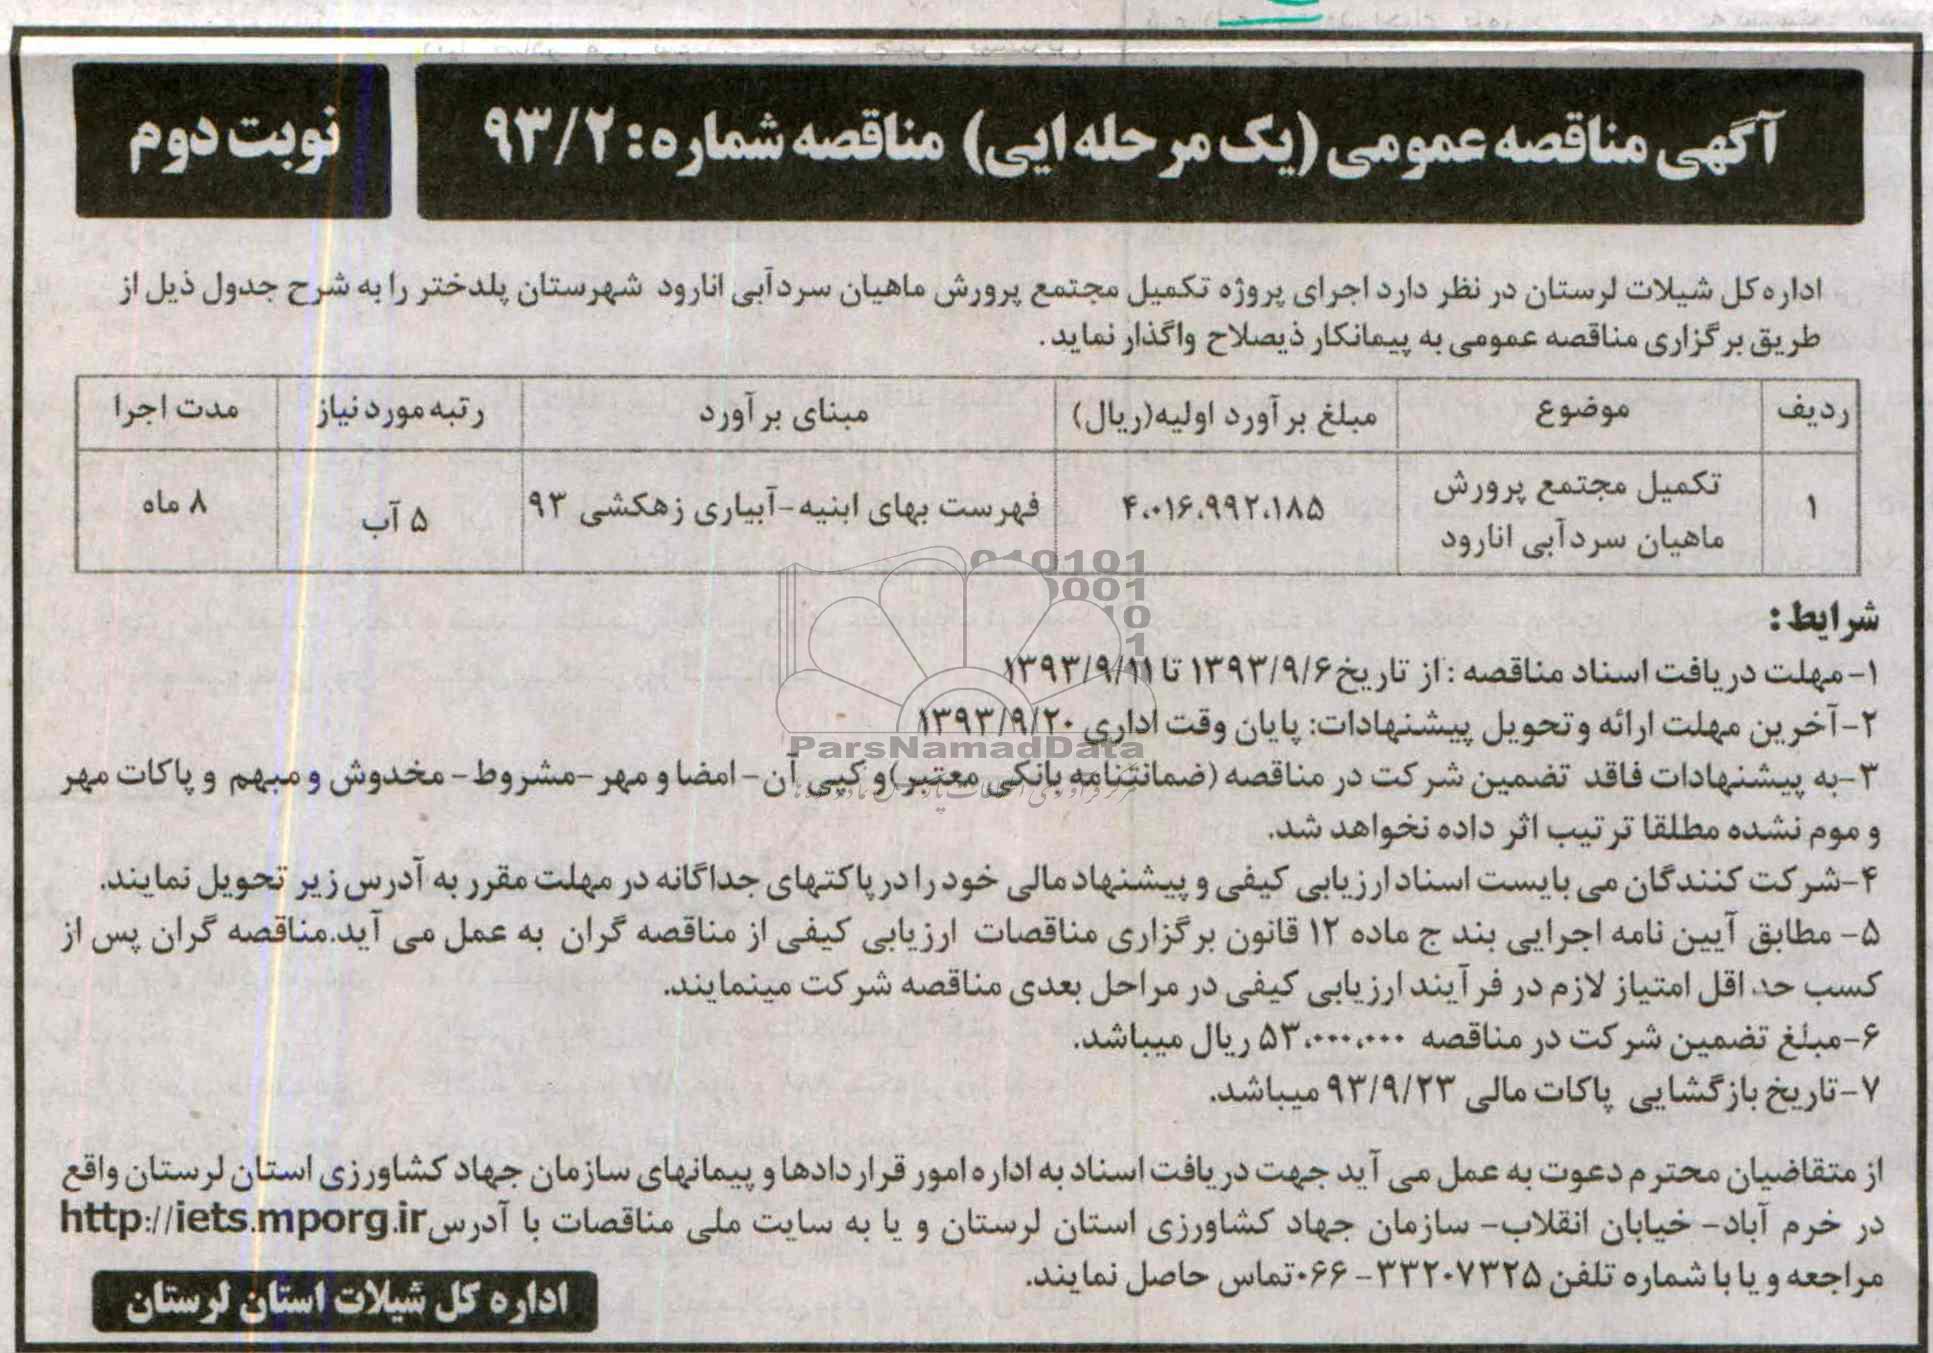 آگهی مناقصه عمومی (یک مرحله ایی) مناقصه شماره: ۹۳/۲
نوبت دوم
اداره کل شیلات لرستان در نظر دارد اجرای پروژه تکمیل مجتمع پرورش ماهیان سردآبی انارود شهرستان پلدختر را به شرح جدول ذیل از
طریق برگزاری مناقصه عمومی به پیمانکار ذیصلاح واگذار نماید.
ردیف موضوع مبلغ برآورد اولیه(ریال) مبنای برآورد رتبه مورد نیاز مدت اجرا
۱ تکمیل مجتمع پرورش ماهیان سردآبی انارود ۴،۰۱۶،۹۹۲،۱۸۵ فهرست بهای ابنیه-آبیاری زهکشی ۹۳ ۵ آب ۸ ماه
شرایط:
۱- مهلت دریافت اسناد مناقصه : از تاریخ ۱۳۹۳/۹/۶ تا ۱۳۹۳/۹/۱۱
۲- آخرین مهلت ارائه و تحویل پیشنهادات: پایان وقت اداری ۱۳۹۳/۹/۲۰
۳- به پیشنهادات فاقد تضمین شرکت در مناقصه (ضمانتنامه بانکی معتبر) و کپی آن- امضا و مهر -مشروط- مخدوش و مبهم و پاکات مهر
و موم نشده مطلقا ترتیب اثر داده نخواهد شد.
۴-شرکت کنندگان می بایست اسناد ارزیابی کیفی و پیشنهاد مالی خود را در پاکتهای جداگانه در مهلت مقرر به آدرس زیر تحویل نمایند.
۵- مطابق آیین نامه اجرایی بند ج ماده ۱۲ قانون برگزاری مناقصات ارزیابی کیفی از مناقصه گران به عمل می آید.مناقصه گران پس از
کسب حداقل امتیاز لازم در فرآیند ارزیابی کیفی در مراحل بعدی مناقصه شرکت مینمایند.
۶-مبلغ تضمین شرکت در مناقصه ۵۳،۰۰۰،۰۰۰ ریال میباشد.
۷-تاریخ بازگشایی پاکات مالی ۹۳/۹/۲۳ میباشد.
از متقاضیان محترم دعوت به عمل می آید جهت دریافت اسناد به اداره امور قراردادها و پیمانهای سازمان جهاد کشاورزی استان لرستان واقع
در خرم آباد- خیابان انقلاب- سازمان جهاد کشاورزی استان لرستان و یا به سایت ملی مناقصات با آدرس http://iets.mporg.ir
مراجعه و یا با شماره تلفن ۳۳۲۰۷۳۲۵-۰۶۶ تماس حاصل نمایند.
اداره کل شیلات استان لرستان
ParsNamadData